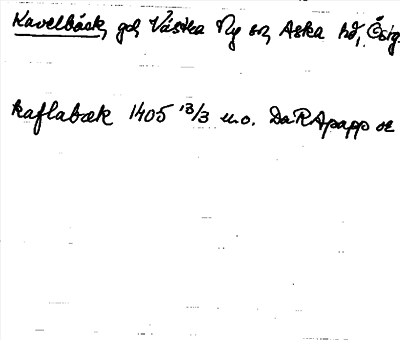 Kavelbäck, gd, Västra Ny sn, Aska hd, Ög.
kaflabæk 1405 13/3 u.o. DaRApapp or